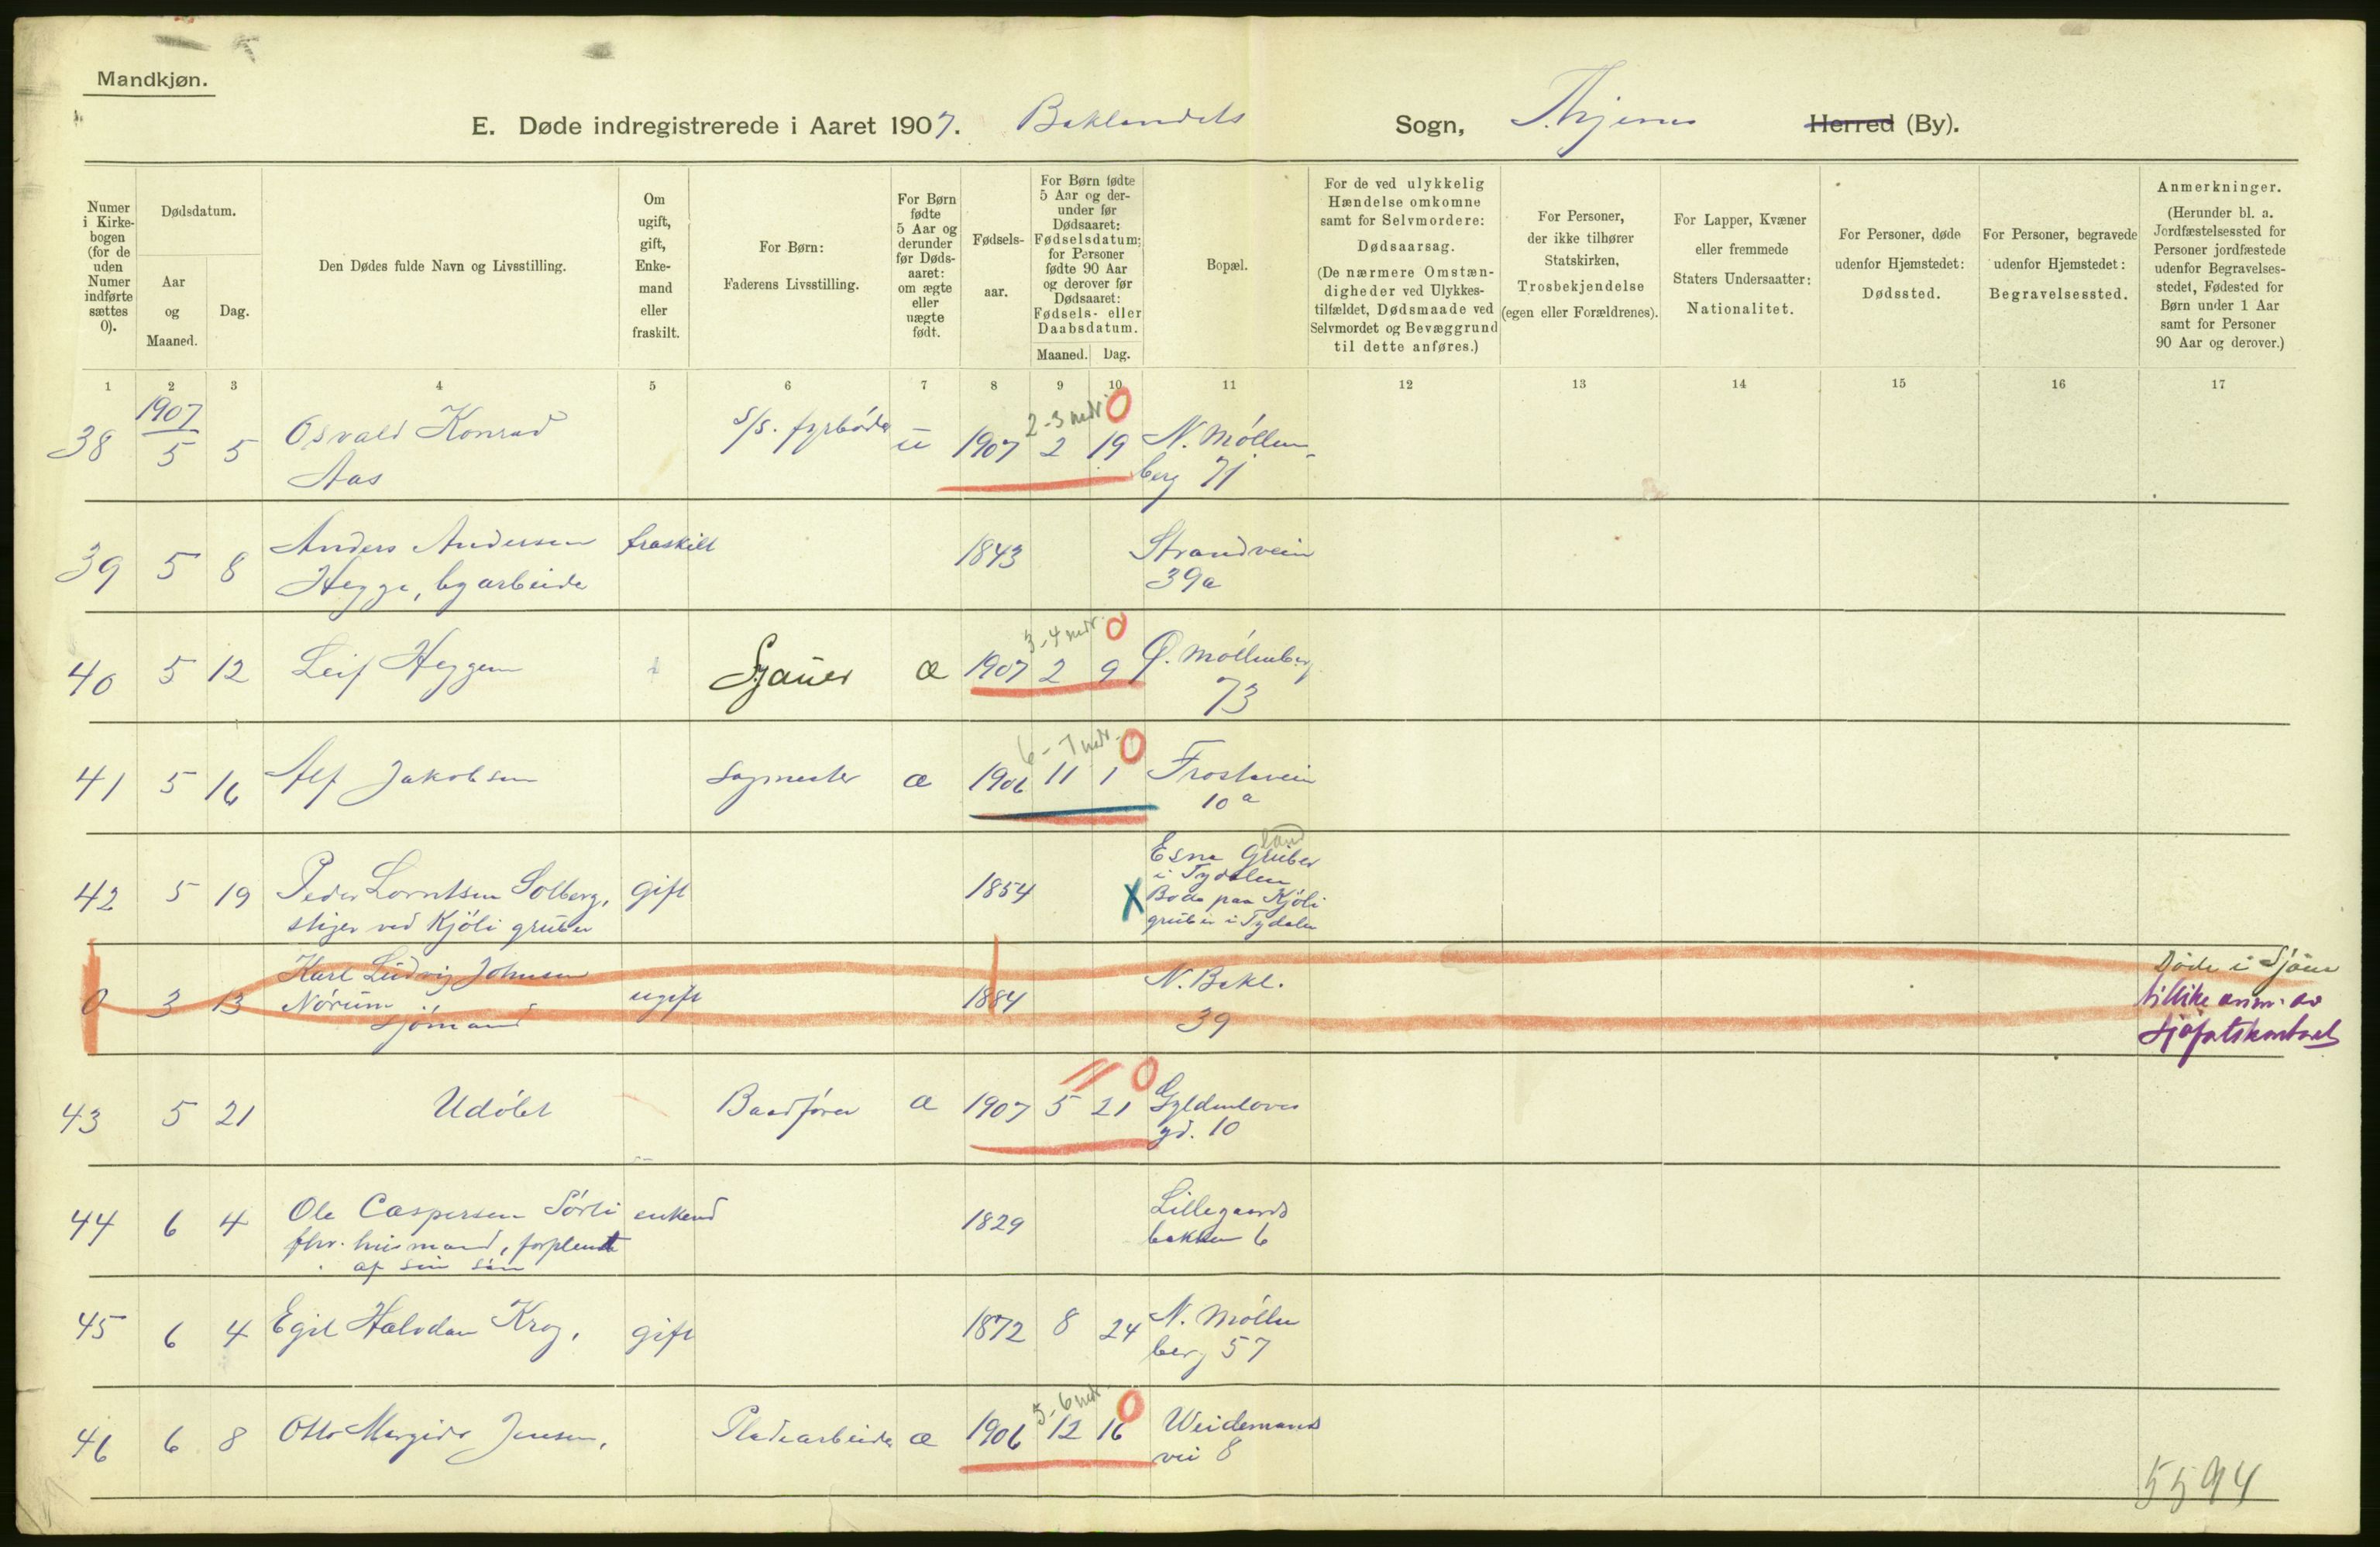 Mandkjøn.
E. Døde indregistrerede i Aaret 1907. Baklandets Sogn, Thjems Herred (By).
Numer i Kirke-bogen (for de uden Numer indførte sættes 0).
Dødsdatum.
Aar og Maaned.
Dag.
Den Dødes fulde Navn og Livsstilling.
Om ugift, gift, Enke-mand eller fraskilt.
For Børn: Faderens Livsstilling.
For Børn fødte 5 Aar og derunder før Døds-aaret: om ægte eller uægte født.
Fødsels-aar.
For Børn fødte 5 Aar og der-under før Dødsaaret: Fødselsdatum; for Personer fødte 90 Aar og derover før Dødsaaret: Fødsels- eller Daabsdatum.
Maaned. Dag.
Bopæl.
For de ved ulykkelig Hændelse omkomne samt for Selvmordere: Dødsaarsag. (De nærmere Omstæn-digheder ved Ulykkes-tilfældet, Dødsmaade ved Selvmordet og Bevæggrund til dette anføres.)
For Personer, der ikke tilhører Statskirken, Trosbekjendelse (egen eller Forældrenes).
For Lapper, Kvæner eller fremmede Staters Undersaatter: Nationalitet.
For Personer, døde udenfor Hjemstedet: Dødssted.
For Personer, begravede udenfor Hjemstedet: Begravelsessted.
Anmerkninger. (Herunder bl. a. Jordfæstelsessted for Personer jordfæstede udenfor Begravelses-stedet, Fødested for Børn under 1 Aar samt for Personer 90 Aar og derover.)
1 2 3 4 5 6 7 8 9 10 11 12 13 14 15 16 17
1907
2-3 mdr. 0
38 5 5 Osvald Konrad S/S. fyrbøder u 1907 2 19 N. Møllen-
Aas berg 71
39 5 8 Anders Andersen fraskilt 1843 Strandvein
Hegge, byarbeider 39a
3-4 mdr. 0
40 5 12 Leif Heggem Sjauer æ 1907 2 9 Ø. Møllenberg
73
6-7 mdr. 0
41 5 16 Alf Jakobsen Sagmester æ 1906 11 1 Frostavein
10 a
land
Esna Gruber
i Tydalen
42 5 19 Peder Lorntsen Solberg, gift 1854 X Bode paa Kjöli
stiger ved Kjöli gruber gruber i Tydalen
Karl Ludvig Johnsen N. Bakl. Döde i Sjöen
0 3 13 Nörum ugift 1884 tillike anm. av
sjömand 39 sjöfatskontoret
0
43 5 21 Udöbt Baadförer æ 1907 5 21 Gyldenløves
gd. 10
44 6 4 Ole Caspersen Sörli enkemd 1829 Lillegaards
fhv. husmand, forpleiet bakken 6
af sin sön
45 6 4 Egil Halvdan Krog, gift 1872 8 24 N. Møllen
berg 57
5-6 mdr. 0
46 6 8 Otto Margido Jensen, Pladearbeider æ 1906 12 16 Weidemands
vei 8
5594